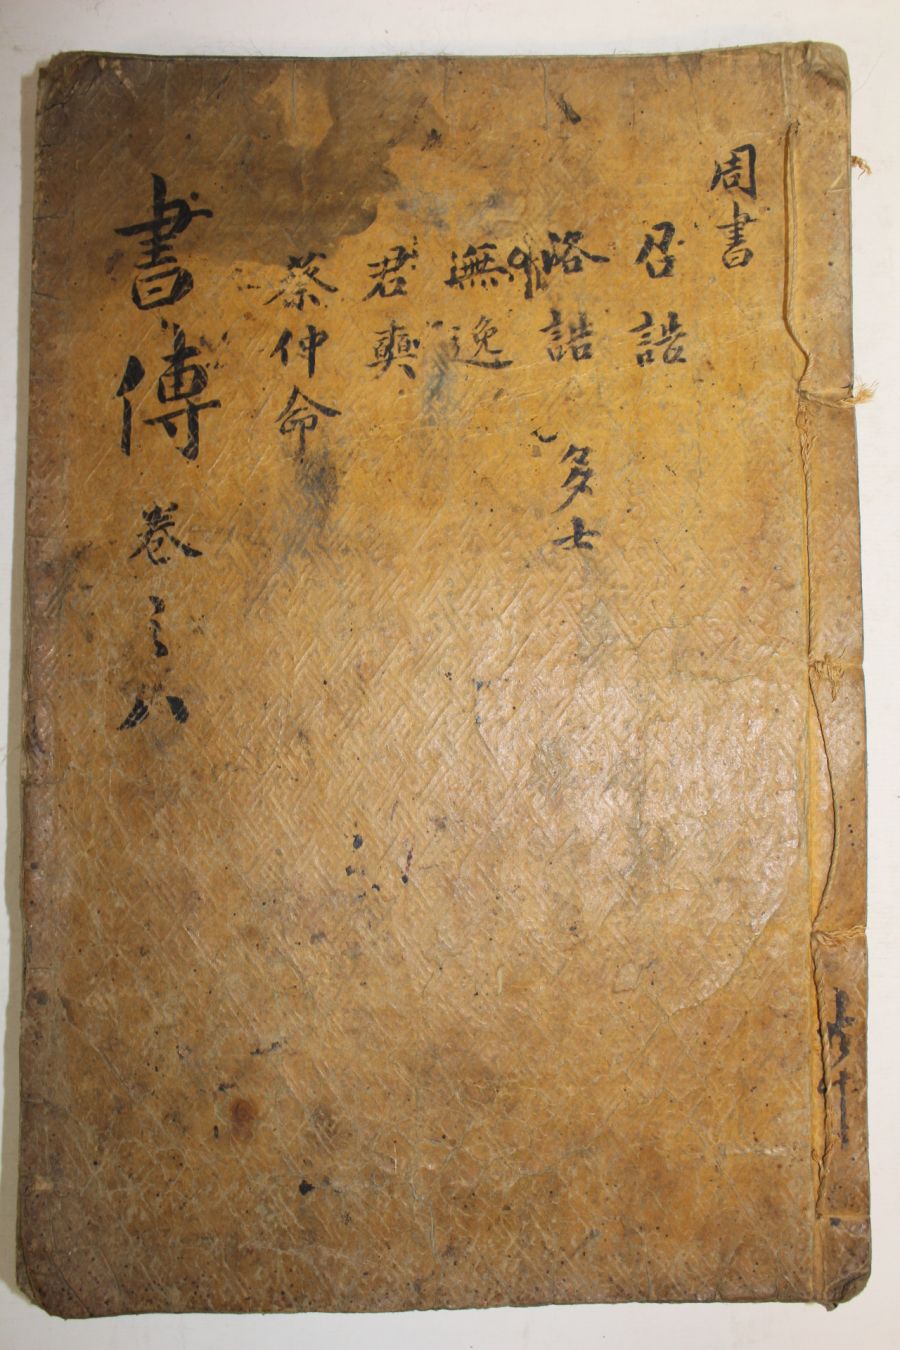 周書
召誥
洛誥 多士
無逸
君奭
蔡仲命
書傳 卷之八
共十